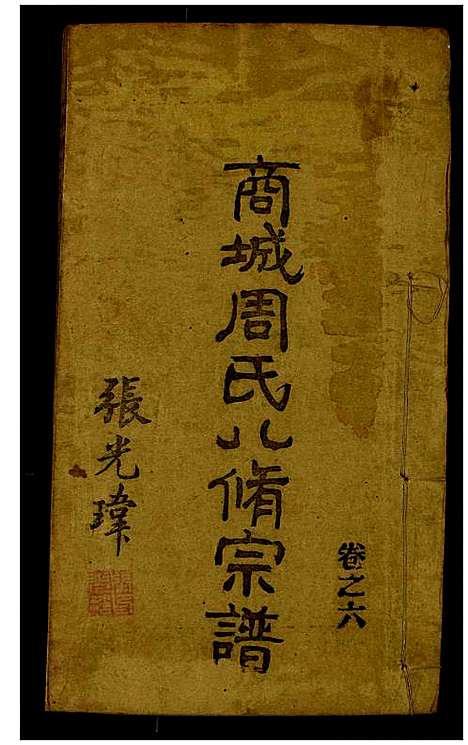 卷之六
商城周氏八脩宗譜
張光瑋